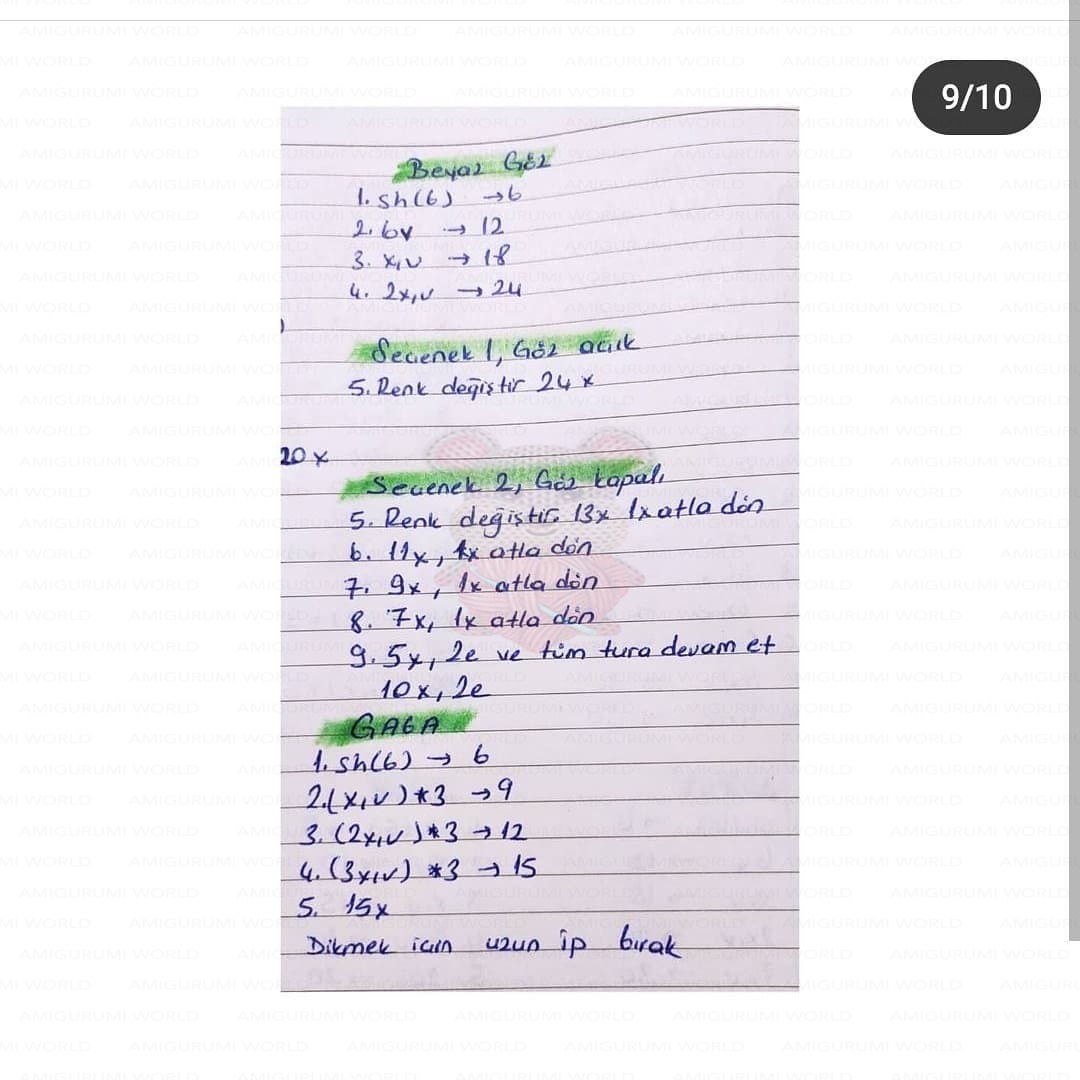 9/10
Beyaz Göz
1. sh(6) → 6
2. 6v → 12
3. x,v → 18
4. 2x,v → 24
Secenek 1, Göz acık
5. Renk değiştir 24 x
20 x
Secenek 2, Göz kapalı
5. Renk değiştir. 13x 1x atla dön
6. 11x, 1x atla dön
7. 9x, 1x atla dön
8. 7x, 1x atla dön
9. 5x, 2e ve tüm tura devam et
10x, 2e
GAGA
1. sh(6) → 6
2. (x,v)*3 → 9
3. (2x,v)*3 → 12
4. (3x,v)*3 → 15
5. 15x
Dikmek icin uzun ip bırak
AMIGURUMI WORLD